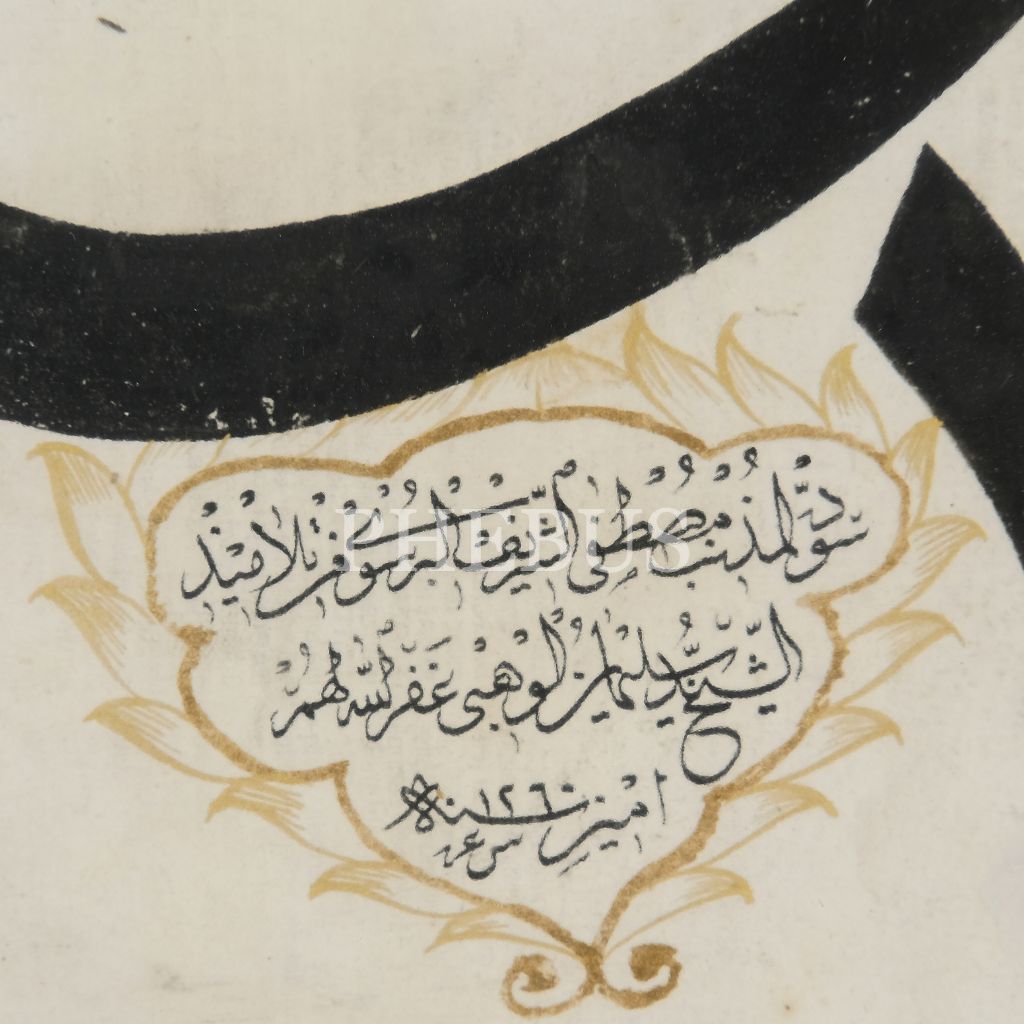 سوده المذنب مصطفى الشريف البرسوى من تلاميذ
الشيخ سليمان الوهبى غفر الله لهم
امين سنة ١٢٦٠
PHEBUS